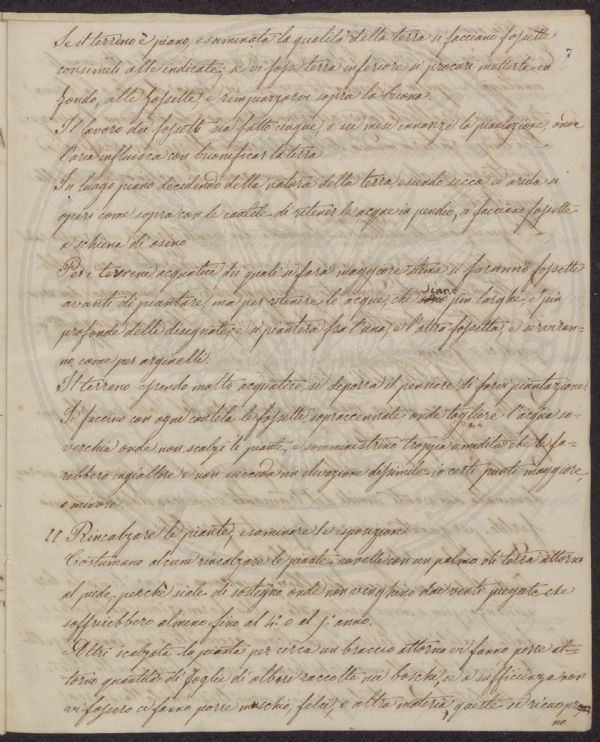 7
Se il terreno è piano, esaminata la qualità della terra si facciano fossette
consimili alle indicate; se vi fosse terra inferiore si procuri metterla in
fondo, alle fossette e rimpiazzarvi sopra la buona.
Il lavoro dei fossetti sia fatto cinque, o sei mesi innanzi la piantazione, onde
l'aria influisca con buonificar la terra
In luogo piano decidendo della natura della terra essendo secca ed arida si
operi come sopra con le cautele di ritener le acque in pendio, si facciano fossette
a schiena di asino
Per i terreni acquatici dei quali si farà maggiore stima si faranno fossette
avanti di piantare, ma per ritenere le acque, che siano più larghe, e più
profonde delle disegnate, e si pianterà fra l'una, e l'altra fossetta, e serviran=
no, come per arginelli.
Il terreno essendo molto acquatico si deporrà il pensiere di farvi piantazione
Si faccino con ogni cautela le fossette sopraccennate onde togliere l'acqua so=
verchia onde non scalzi le piante, e somministrino troppa umidità che le fa=
rebbero ingiallore e non succeda un elevazione dissimile in certi punti maggiore,
e minore
11 Rincalzare le piante, esaminare le esposizioni
Costumano alcuni rincalzare le piante novelle con un palmo di terra attorno
al piede, perchè siale di sostegno, onde non venghino dai venti piegate che
soffrirebbero almeno fino al 4. e al 5. anno.
Altri scalzata la pianta per circa un braccio attorno vi fanno porre at=
torno quantità di foglie di albore raccolte nei boschi, e se a sufficienza non
vi fossero ci fanno porre muschio, felci, o altra materia, queste si ricuopro=
no